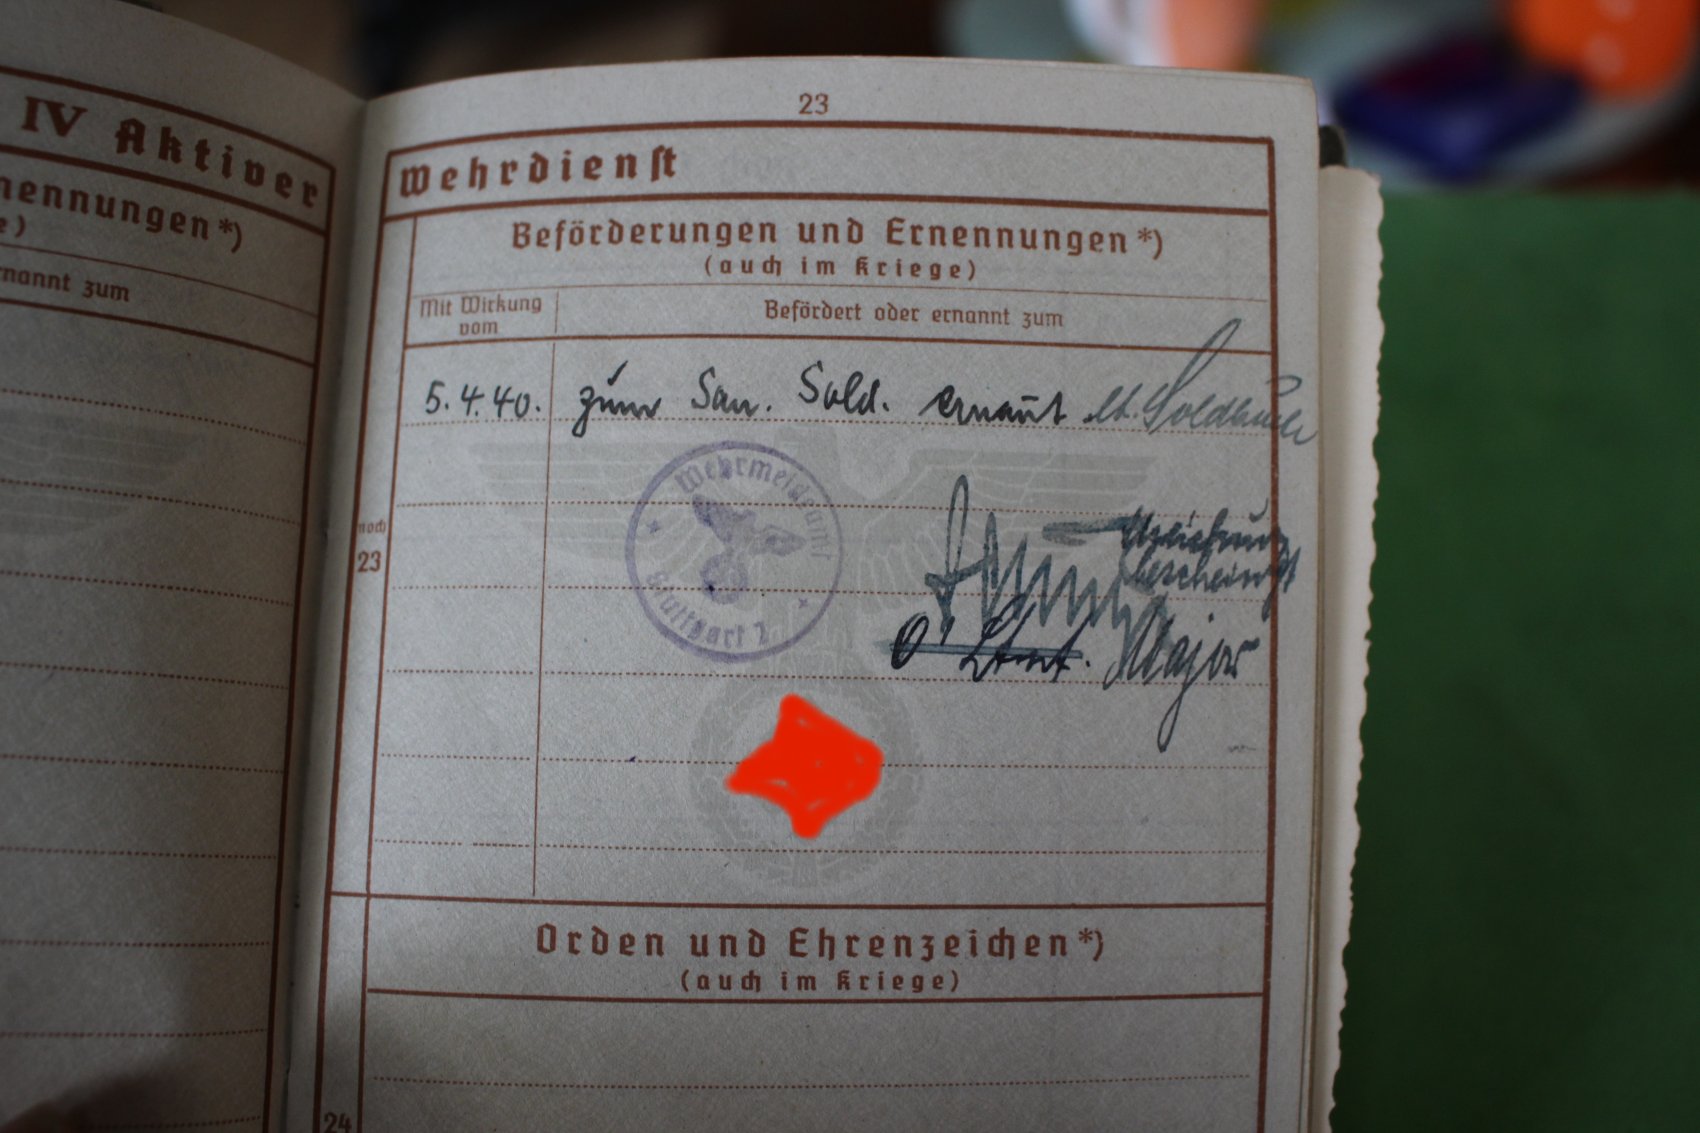 IV Aktiver
nennungen *)
e)
rnannt zum
23
Wehrdienst
Beförderungen und Ernennungen *)
(auch im Kriege)
Mit Wirkung
vom
Befördert oder ernannt zum
5.4.40. zum San. Sold. ernannt lt. Soldbuch
Wehrmeldeamt
Stuttgart 2
bescheinigt
O'Ltnt. Major
noch
23
Orden und Ehrenzeichen *)
(auch im Kriege)
24